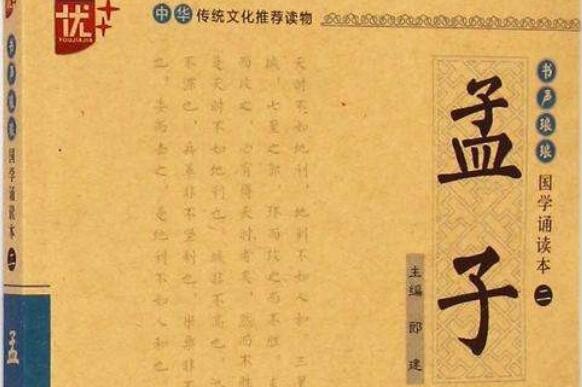 优
YOUJIAJIA
中华传统文化推荐读物
书声琅琅
国学诵读本
二
孟子
主编 郎建
天时不如地利，地利不如人和。三里
城，七里之郭，环而攻之而不胜。夫
而攻之，必有得天时者矣，然而不胜
是天时不如地利也。城非不高也，池
不深也，兵革非不坚利也，米粟非不
也，委而去之，是地利不如人和也
书声琅琅
国学诵读本
二
孟